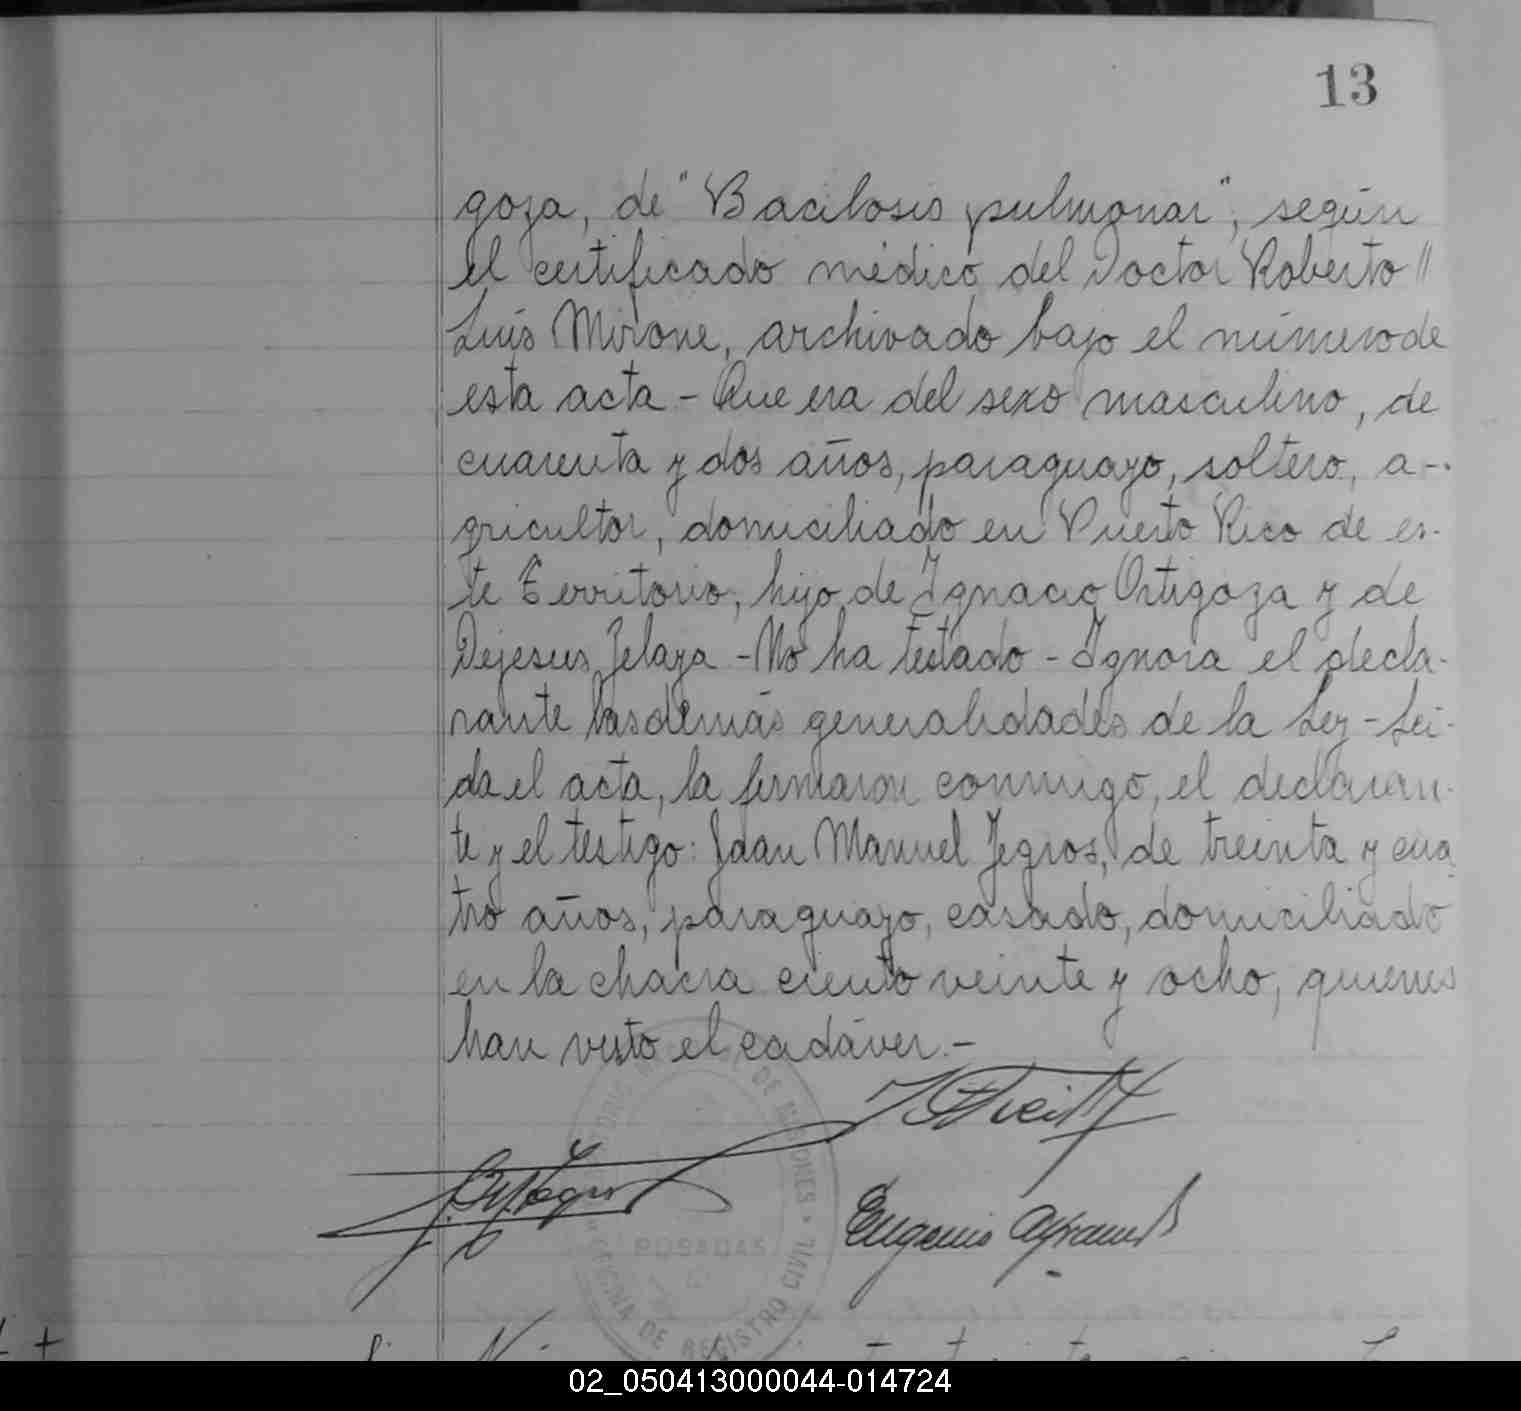 13
goza, de "Bacilosis pulmonar", según
el certificado médico del Doctor Roberto //
Luis Mirone, archivado bajo el número de
esta acta - Que era del sexo masculino, de
cuarenta y dos años, paraguayo, soltero, a-
gricultor, domiciliado en Puerto Rico de es-
te Territorio, hijo de Ignacio Ortigoza y de
Dejesus Zelaya - No ha testado - Ignora el decla-
rante las demás generalidades de la Ley - Leí-
da el acta, la firmaron conmigo, el declaran-
te y el testigo: Juan Manuel Yegros, de treinta y cua
tro años, paraguayo, casado, domiciliado
en la chacra ciento veinte y ocho, quienes
han visto el cadáver. -
Eugenio
DE MISIONES
POSADAS
OFICINA DE REGISTRO CIVIL
02_050413000044-014724